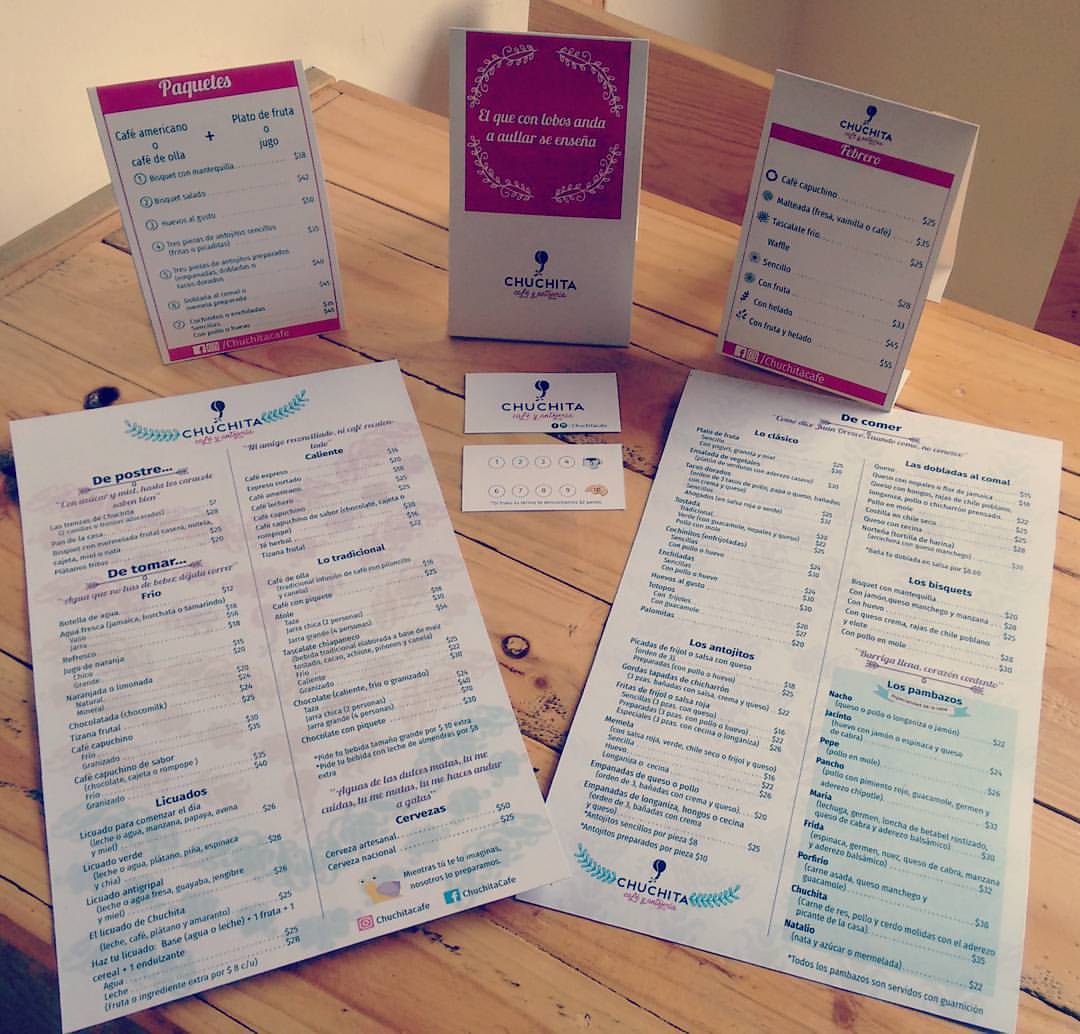 Paquetes
Café americano
o
café de olla
+
Plato de fruta
o
jugo
1 Bisquet con mantequilla
2 Bisquet salado $42
3 Huevos al gusto
4 Tres piezas de antojitos sencillos
(fritas o picaditas)
5 Tres piezas de antojitos preparados
(empanadas, dobladas o
tacos dorados
Doblada al comal o
memela preparada
7 Cochinitos o enchiladas
Sencillas
Con pollo o huevo
/Chuchitacafe
El que con lobos anda
a aullar se enseña
CHUCHITA
café y antojería
CHUCHITA
café y antojería
Febrero
Café capuchino $25
Malteada (fresa, vainilla o café) $35
Tascalate frío $25
Waffle
Sencillo $28
Con fruta $33
Con helado $45
Con fruta y helado $55
/Chuchitacafe
CHUCHITA
café y antojería
/ Chuchitacafe
1 2 3 4
6 7 8 9 10
CHUCHITA
café y antojería
De postre...
"Con azúcar y miel, hasta los caracoles
saben bien"
Las trenzas de Chuchita
Pan de la casa
Bisquet con mermelada frutal casera, nutela,
cajeta, miel o nata
Plátanos fritos $20
De tomar...
"Agua que no has de beber, déjala correr"
Frío
Botella de agua $12
Agua fresca (jamaica, horchata o tamarindo)
Vaso
Jarra
Refresco $18
Jugo de naranja
Chico $15
Grande $20
Naranjada o limonada
Natural $20
Mineral $24
Chocolatada (chocomilk) $24
Tizana frutal $25
Café capuchino
Frío $30
Granizado $35
Café capuchino de sabor
(chocolate, cajeta o rompope )
Frío $35
Granizado $40
Licuados
Licuado para comenzar el día
(leche o agua, manzana, papaya, avena
y miel) $26
Licuado verde
(leche o agua, plátano, piña, espinaca
y chía) $28
Licuado antigripal
(leche o agua fresa, guayaba, jengibre
y miel) $26
El licuado de Chuchita
(leche, café, plátano y amaranto) $25
Haz tu licuado: Base (agua o leche) • 1 fruta • 1
cereal • 1 endulzante
Agua $25
Leche $28
(Fruta o ingrediente extra por $ 8 c/u)
"Ni amigo reconciliado, ni café recalen-
tado"
Caliente
Café expreso $16
Expreso cortado $20
Café americano $18
Café lechero $25
Café capuchino
Café capuchino de sabor (chocolate, cajeta o
rompope)
Té herbal $16
Tizana frutal $22
Lo tradicional
Café de olla
(tradicional infusión de café con piloncillo
y canela) $16
Café con piquete $25
Atole
Taza $18
Jarra chica (2 personas) $30
Jarra grande (4 personas) $54
Tascalate chiapaneco
(bebida tradicional elaborada a base de maíz
tostado, cacao, achiote, piñones y canela)
Frío $25
Caliente $22
Granizado $30
Chocolate (caliente, frío o granizado)
Taza $24
Jarra chica (2 personas) $40
Jarra grande (4 personas) $70
Chocolate con piquete $30
*Pide tu bebida tamaño grande por $ 10 extra
*Pide tu bebida con leche de almendras por $8
extra
"Aguas de las dulces matas, tu me
cuidas, tu me matas, tu me haces andar
a gatas"
Cervezas
Cerveza artesanal $50
Cerveza nacional $25
Mientras tú te lo imaginas,
nosotros lo preparamos.
Chuchitacafe
ChuchitaCafe
De comer
"Como dice Juan Orozco, cuando como, no conozco"
Lo clásico
Plato de fruta
Sencillo
Con yogurt, granola y miel
Ensalada de vegetales
Tacos dorados
(orden de 3 tacos de pollo, papa o queso, bañados
con crema y queso)
Sencillos
Ahogados (en salsa roja o verde)
Tostada
Tradicional
Verde (con guacamole, nopales y queso)
Pollo con mole
Cochinitos (enfrijoladas)
Sencillas
Con pollo o huevo
Enchiladas
Sencillas $24
Con pollo o huevo $30
Huevos al gusto
Totopos
Con frijoles
Con guacamole
Palomitas $20
Los antojitos
Picadas de frijol o salsa con queso
(orden de 3)
Preparadas (con pollo o huevo) $25
Gordas tapadas de chicharrón
(3 pzas. bañadas con salsa, crema y queso) $22
Fritas de frijol o salsa roja
Sencillas (3 pzas. con queso) $16
Preparadas (3 pzas. con pollo o huevo) $22
Especiales (3 pzas. con cecina o longaniza) $26
Memela
(con salsa roja, verde, chile seco o frijol y queso)
Sencilla $16
Huevo $22
Longaniza o cecina $26
Empanadas de queso o pollo
(orden de 3, bañadas con crema y queso) $20
Empanadas de longaniza, hongos o cecina
(orden de 3, bañadas con crema
y queso) $25
*Antojitos sencillos por pieza $8
*Antojitos preparados por pieza $10
CHUCHITA
café y antojería
Las dobladas al comal
Queso $15
Queso con nopales o flor de jamaica
Queso con hongos, rajas de chile poblano,
longaniza, pollo o chicharrón prensado
Pollo en mole
Costilla en chile seco
Queso con cecina
Norteña (tortilla de harina)
(arrachera con queso manchego) $30
*Baña tu doblada en salsa por $8.00
Los bisquets
Bisquet con mantequilla $20
Con jamón, queso manchego y manzana $28
Con huevo $25
Con queso crema, rajas de chile poblano
y elote $28
Con pollo en mole $30
"Barriga llena, corazón contento"
Los pambazos
Especialidad de la casa
Nacho
(queso o pollo o longaniza o jamón) $22
Jacinto
(huevo con jamón o espinaca y queso
de cabra)
Pepe
(pollo en mole) $24
Pancho
(pollo con pimiento rojo, guacamole, germen y
aderezo chipotle) $26
María
(lechuga, germen, loncha de betabel rostizado,
queso de cabra y aderezo balsámico) $32
Frida $30
(espinaca, germen, nuez, queso de cabra, manzana
y aderezo balsámico) $32
Porfirio
(carne asada, queso manchego y
guacamole) $36
Chuchita
(Carne de res, pollo y cerdo molidas con el aderezo
picante de la casa) $35
Natalio
(nata y azúcar o mermelada) $22
*Todos los pambazos son servidos con guarnición